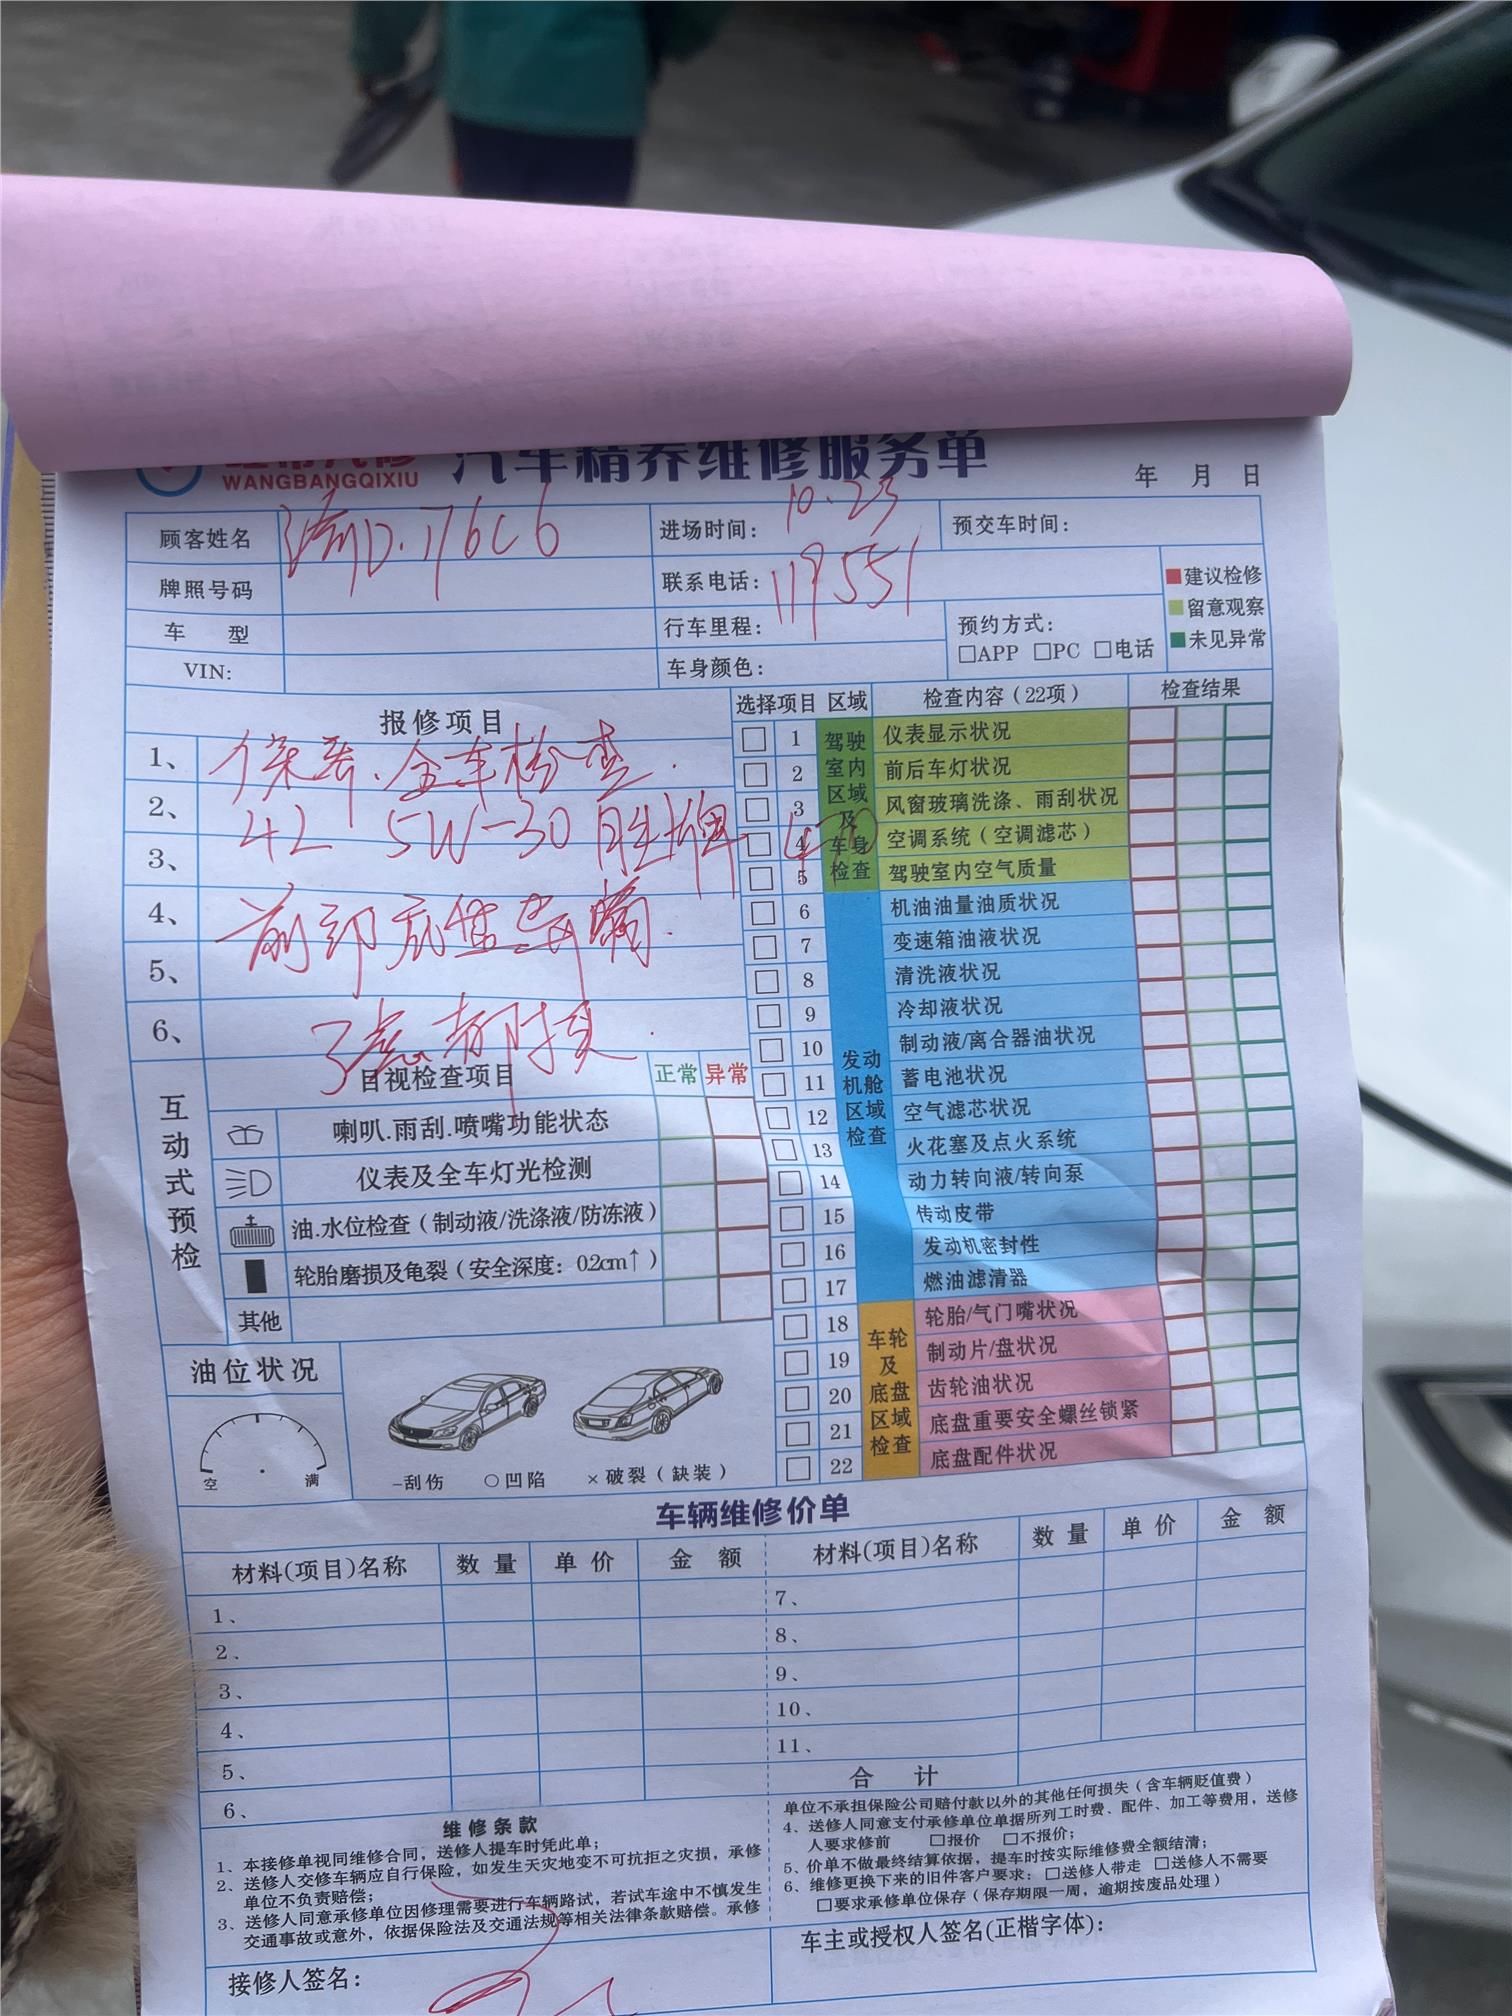 WANGBANGQIXIU
汽车精养维修服务单
年 月 日
顾客姓名 渝D.176C6
进场时间: 10.23
预交车时间:
牌照号码
联系电话: 119551
建议检修
留意观察
未见异常
车 型
行车里程:
预约方式:
□APP □PC □电话
VIN:
车身颜色:
报修项目
1、保养.全车检查.
2、4L 5W-30 胜牌. 470
3、
4、前部底盘
5、
6、
选择项目 区域 检查内容(22项) 检查结果
驾驶室内区域及车身检查
□ 1 仪表显示状况
□ 2 前后车灯状况
□ 3 风窗玻璃洗涤、雨刮状况
□ 4 空调系统(空调滤芯)
□ 5 驾驶室内空气质量
发动机舱区域检查
□ 6 机油油量油质状况
□ 7 变速箱油液状况
□ 8 清洗液状况
□ 9 冷却液状况
□ 10 制动液/离合器油状况
□ 11 蓄电池状况
□ 12 空气滤芯状况
□ 13 火花塞及点火系统
□ 14 动力转向液/转向泵
□ 15 传动皮带
□ 16 发动机密封性
□ 17 燃油滤清器
车轮及底盘区域检查
□ 18 轮胎/气门嘴状况
□ 19 制动片/盘状况
□ 20 齿轮油状况
□ 21 底盘重要安全螺丝锁紧
□ 22 底盘配件状况
互动式预检
目视检查项目 正常 异常
喇叭.雨刮.喷嘴功能状态
仪表及全车灯光检测
油.水位检查(制动液/洗涤液/防冻液)
轮胎磨损及龟裂(安全深度: 0.2cm↑)
其他
油位状况
空 满
–刮伤 ○凹陷 ×破裂(缺装)
车辆维修价单
材料(项目)名称 数量 单价 金额 材料(项目)名称 数量 单价 金额
1、 7、
2、 8、
3、 9、
4、 10、
5、 11、
6、 合 计
维修条款
1、本接修单视同维修合同,送修人提车时凭此单;
2、送修人交修车辆应自行保险,如发生天灾地变不可抗拒之灾损,承修
单位不负责赔偿;
3、送修人同意承修单位因修理需要进行车辆路试,若试车途中不慎发生
交通事故或意外,依据保险法及交通法规等相关法律条款赔偿。承修
单位不承担保险公司赔付款以外的其他任何损失(含车辆贬值费)
4、送修人同意支付承修单位单据所列工时费、配件、加工等费用,送修
人要求修前 □报价 □不报价;
5、价单不做最终结算依据,提车时按实际维修费全额结清;
6、维修更换下来的旧件客户要求: □送修人带走 □送修人不需要
□要求承修单位保存(保存期限一周,逾期按废品处理)
接修人签名:
车主或授权人签名(正楷字体):